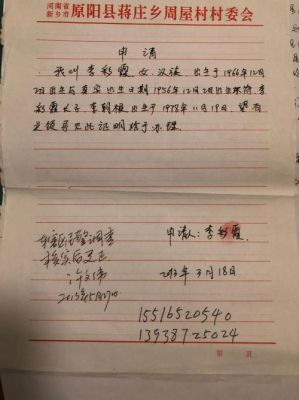 河南省
新乡市 原阳县蒋庄乡周屋村村委会
申请
我叫李彩霞 女,汉族 出生于1966年12月
2日出生与真实出生日期1956年12月2日出生不符,李
彩霞长子 李朝根 出生于1978年11月19日 望有
关领导见此证明给予办理.
申请人:李彩霞.
2013年3月18日.
核实后更正
2013年5月17日
15516520540
13938725024
第 页